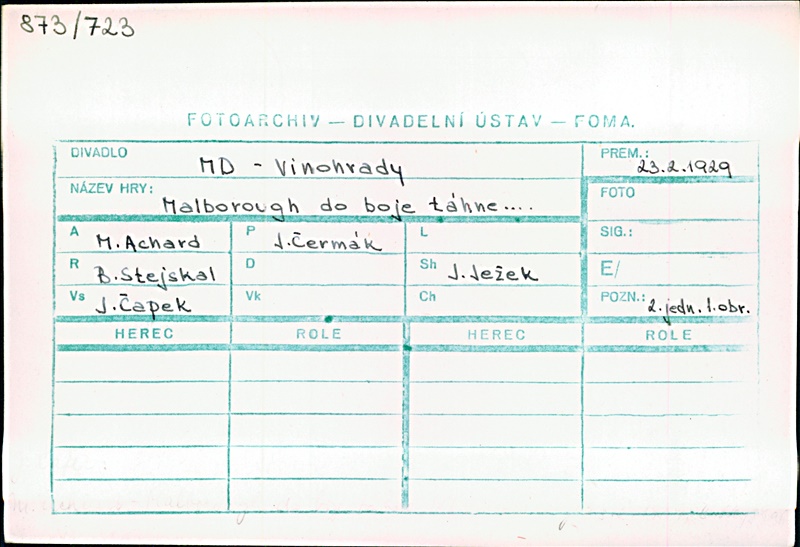 873/723
FOTOARCHIV — DIVADELNÍ ÚSTAV — FOMA.
DIVADLO MD - Vinohrady PREM.: 23.2.1929
NÁZEV HRY: Malborough do boje táhne.... FOTO
A M. Achard P J. Čermák L SIG.:
R B. Stejskal D Sh J. Ježek E/
Vs J. Čapek Vk Ch POZN.: 2. jedn. 1. obr.
HEREC ROLE HEREC ROLE